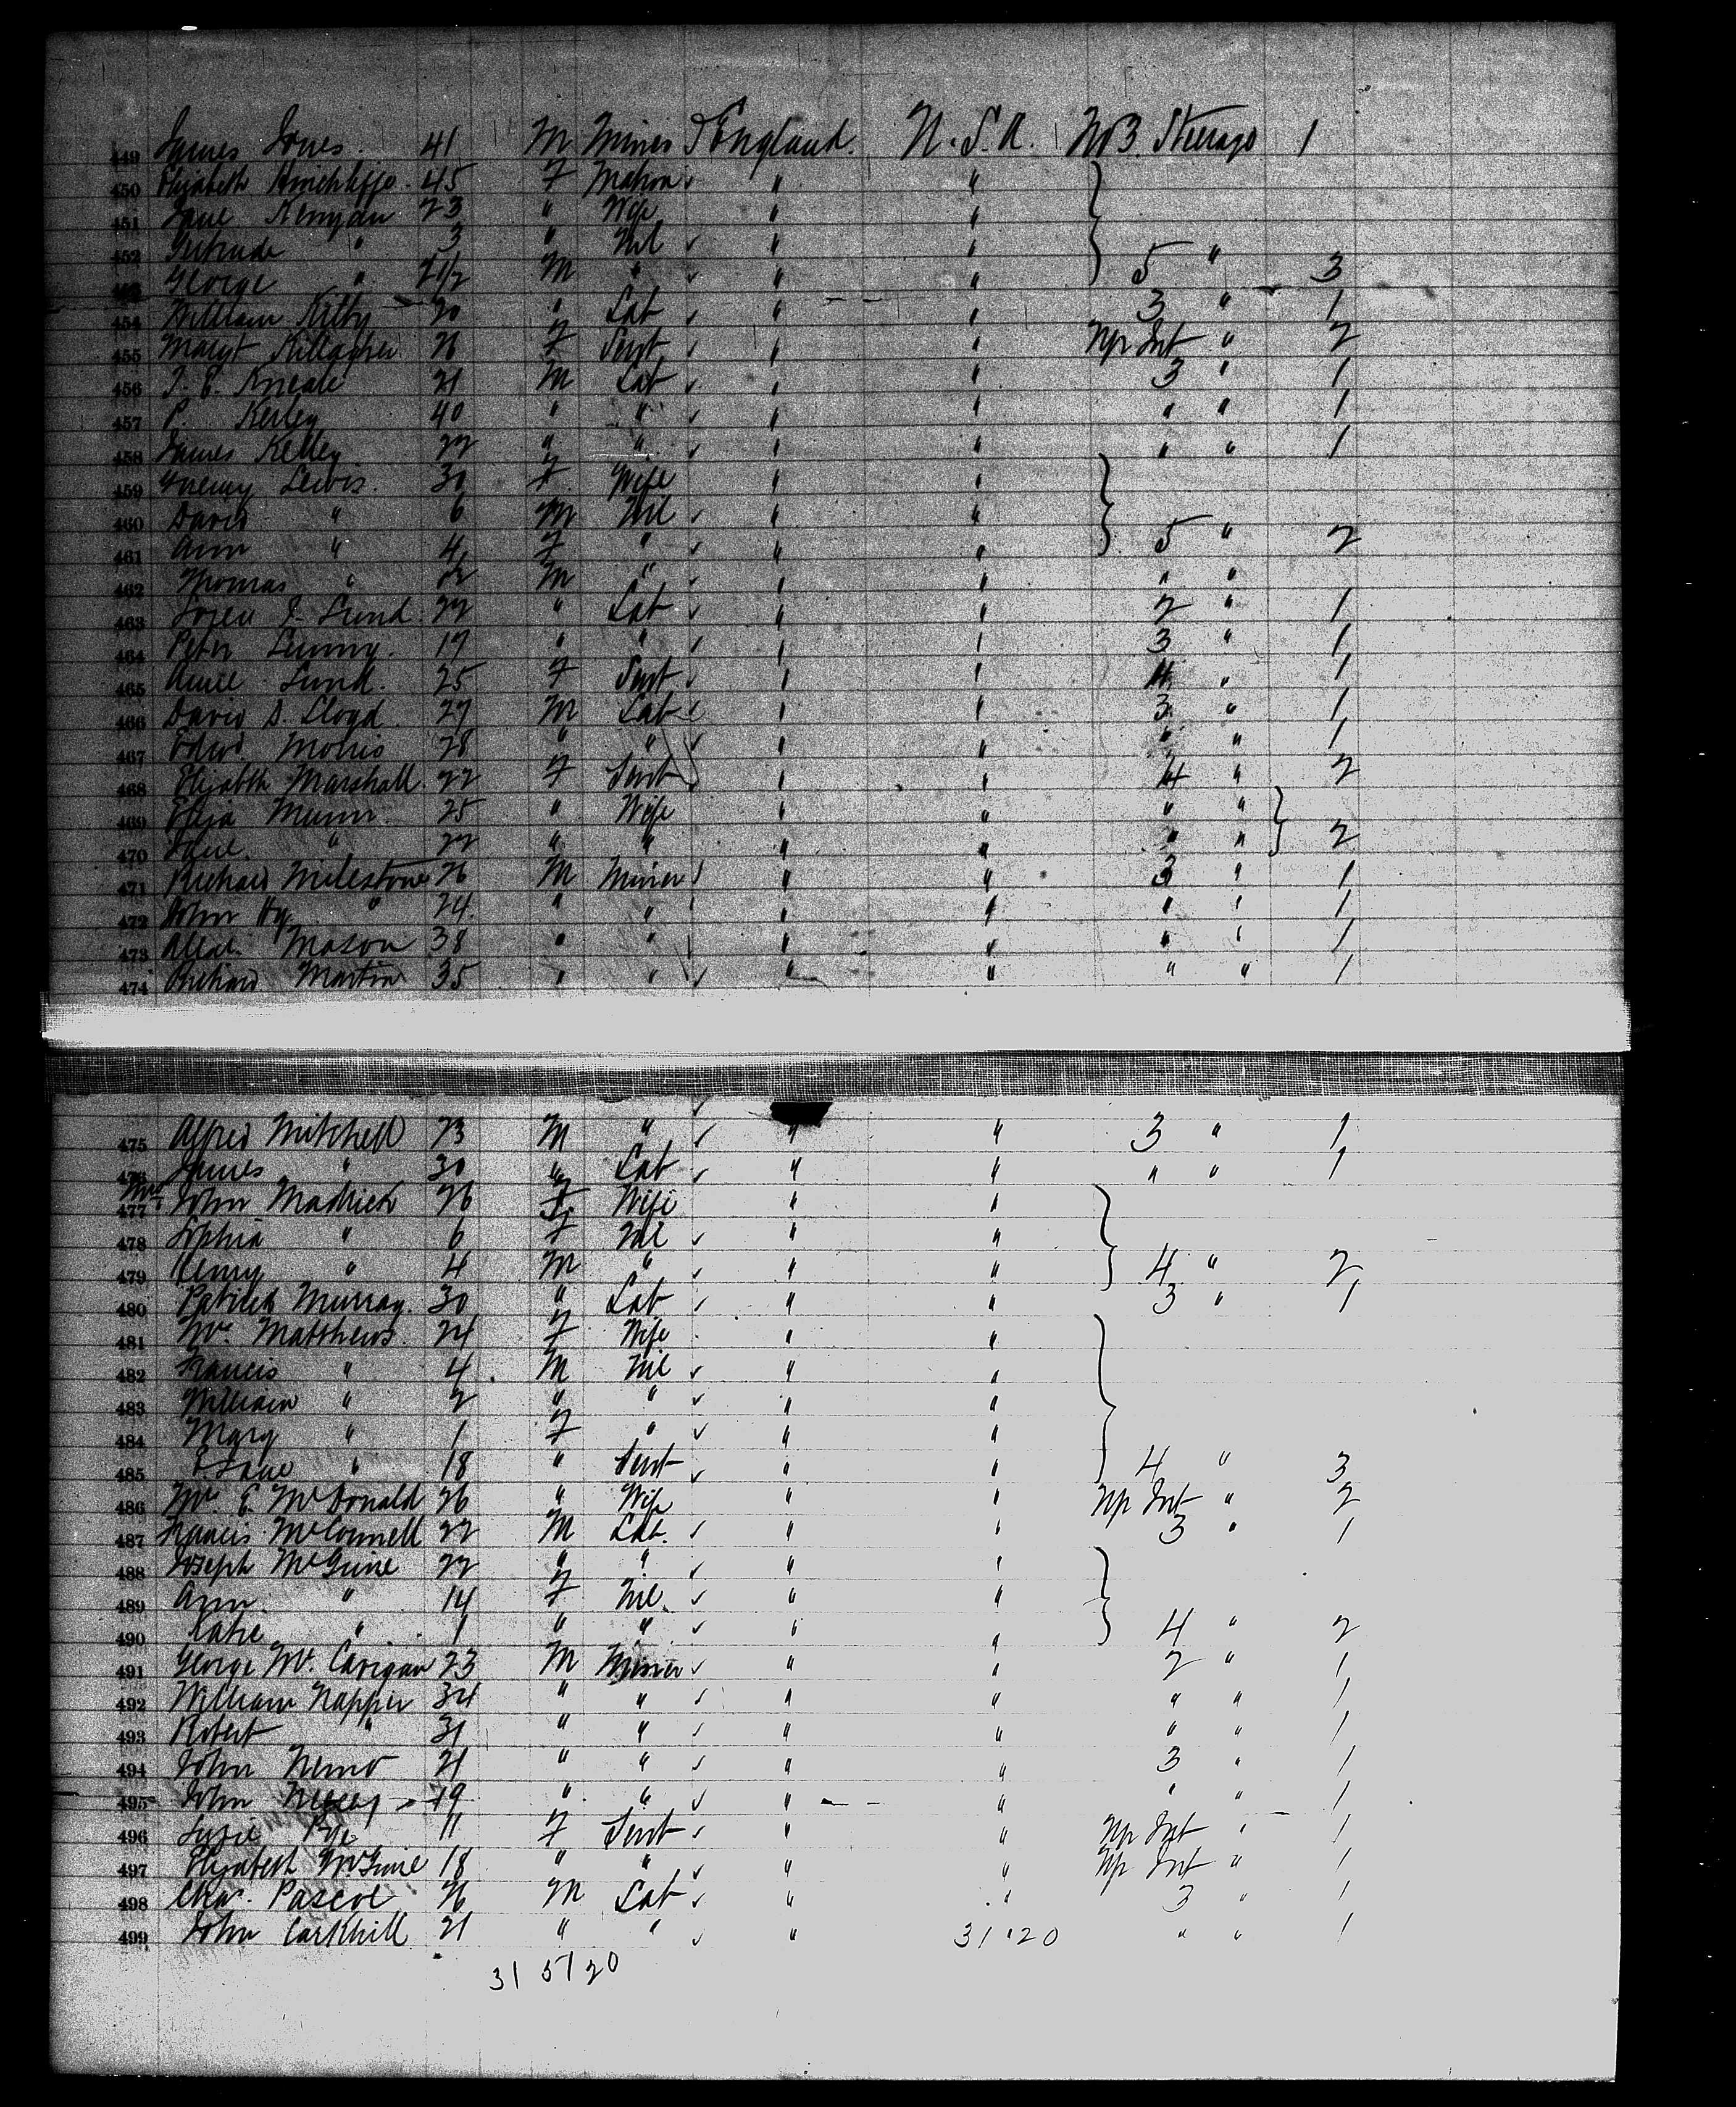 449 James Jones. 41 M Miner England. U.S.A. No3. Steerage 1
450 Elizabeth Hinchliffe. 45 F Matron " "
451 Jane Kenyon 23 " Wife " "
452 Gertrude " 3 " Nil " "
George " 2 1/2 M " " " 5 " 3
454 William Kilby 20 " Lab " " 3 " 1
455 Margt Killagher 26 F Servt " " Up Int " 2
456 T. E. Kneale 21 M Lab " " 3 " 1
457 P. Kerley 40 " " " " " " 1
458 James Kelley 22 " " " " " " 1
459 Lewis. 30 F. Wife " "
460 David " 6 M Nil " "
461 Ann " 4 F " " " 5 " 2
462 Thomas " M " " " " "
463 Lund. 22 " Lab " " 2 " 1
464 Peter Lunny. 19 " " " " 3 " 1
465 Lund. 25 F Servt " " 4 " 1
466 David D. Lloyd 27 M Lab " " 3 " 1
467 Edwd. Morris 28 " " " " " " 1
468 Elizabth Marshall. 22 F Servt " " 4 " 2
469 Eliza Munn. 25 " Wife " " " "
470 Jane. " 22 " " " " " " 2
471 Richard Milestone 26 M Miner " " 3 " 1
472 John Hy " 24. " " " " " " 1
473 Mason 38 " " " " " " 1
474 Richard Martin 35 " " " " " " 1
475 Alfred Mitchell 23 M " " " 3 " 1
476 James " 30 " Lab " " " " 1
477 Mrs John Madrick 26 F Wife " "
478 Sophia " 6 F Nil " "
479 Henry " 4 M " " " 4 " 2
480 Patrick Murray. 30 " Lab " " 3 " 1
481 Mrs. Matthews 24 F Wife " "
482 Francis " 4 M Nil " "
483 William " 2 " " " "
484 Mary " 1 F " " "
485 E. Jane " 18 " Servt " " 4 " 3
486 Mrs E. McDonald 26 " Wife " " Up Int " 2
487 Francis McConnell 22 M Lab. " " 3 " 1
488 Joseph McGuire 22 " " " "
489 Ann. " 14 F Nil " "
490 Katie " 1 " " " " 4 " 2
491 George Mc. Carigan 23 M Miner " " 2 " 1
492 William Napper 34 " " " " " " 1
493 Robert " 31 " " " " " " 1
494 John Nemo 21 " " " " 3 " 1
495 John 19 " " " " " " 1
496 Lizzie Pye 11 F Servt " " Up Int " 1
497 Elizabeth McGuire 18 " " " " Up Int " 1
498 Chas. Pascoe 26 M Lab " " 3 " 1
499 John Carkhill 21 " " " 31 " 20 " " 1
31 51 20